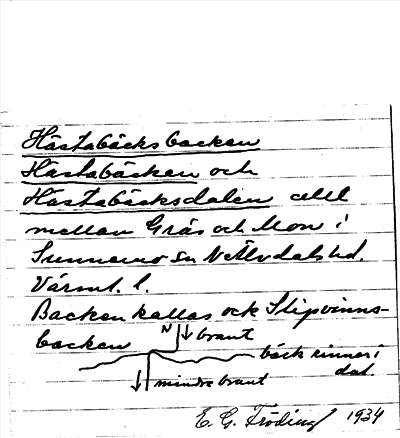 Hästabäcksbacken
Hästabäcken och
Hästabäcksdalen allt
mellan Gräs och Mon i
Sunnemo sn N Älvdals hd.
Värml. l.
Backen kallas ock Slipvinns-
backen N brant
bäck rinner i
dal.
mindre brant
E. G. Fröding 1934